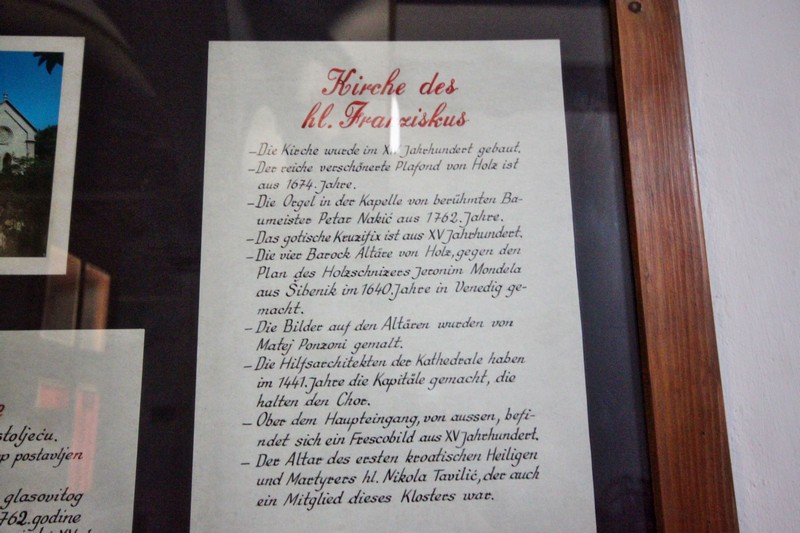 Kirche des
hl. Franziskus
– Die Kirche wurde im Jahrhundert gebaut.
– Der reiche verschönerte Plafond von Holz ist
aus 1674. Jahre.
– Die Orgel in der Kapelle von berühmten Ba-
umeister Petar Nakić aus 1762. Jahre.
– Das gotische Kruzifix ist aus XV Jahrhundert.
– Die vier Barock Altäre von Holz, gegen den
Plan des Holzschnizers Jeronim Mondela
aus Šibenik im 1640 Jahre in Venedig ge-
macht.
– Die Bilder auf den Altären wurden von
Matej Ponzoni gemalt.
– Die Hilfsarchitekten der Kathedrale haben
im 1441. Jahre die Kapitäle gemacht, die
halten den Chor.
– Ober dem Haupteingang, von aussen, befi-
ndet sich ein Frescobild aus XV Jahrhundert.
– Der Altar des ersten kroatischen Heiligen
und Martyrers hl. Nikola Tavilić, der auch
ein Mitglied dieses Klosters war.
stoljeću.
postavljen
glasovitog
1762. godine